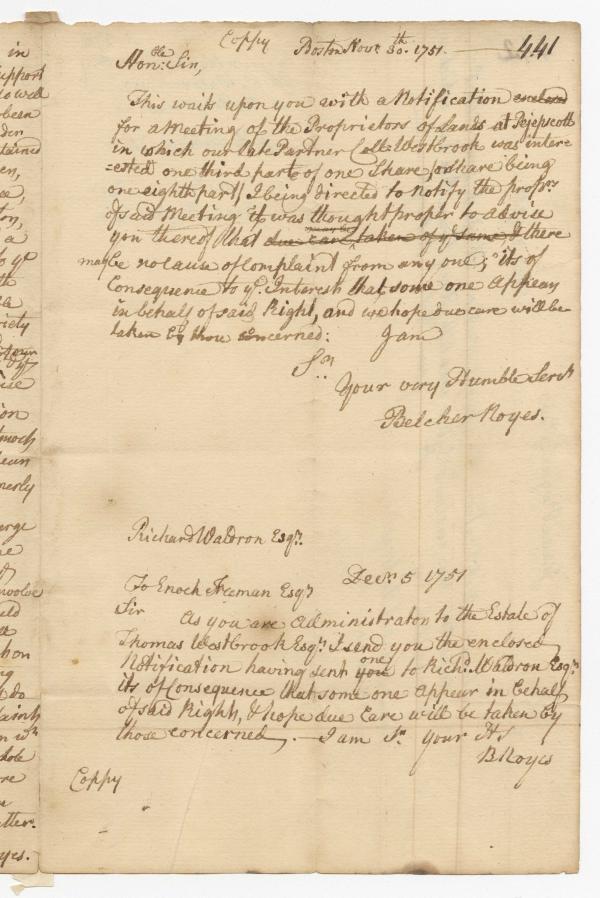 Coppy Boston Nov.r 30.th 1751. 441
Hon.ble Sir,
This waits upon you with a Notification enclosed
for a Meeting of the Proprietors of Lands at Pejepscott
in which our late Partner Coll.o Westbrook was inter=
=ested one third part of one Share, (a share being
one eighth part) I being directed to Notify the prop.rs
of said Meeting it was thought proper to advise
you thereof that due care may be taken of y.e same, & there
may be no cause of Complaint from any one; its of
Consequence to y.e Interest that some one Appear
in behalf of said Right, and we hope due care will be
taken by those concerned: I am
S.r
Your very Humble Serv.t
Belcher Noyes.
Richard Waldron Esq.r
Dec.r 5 1751
To Enoch Freeman Esq.r
Sir
As you are Administrator to the Estate of
Thomas Westbrook Esq.r I send you the enclosed
Notification having sent you one to Rich.d Waldron Esq.r
its of Consequence that some one appear in behalf
of said Right, & hope due Care will be taken by
those concerned, — I am S.r your HS
B Noyes
Coppy
in
upport
to well
been
den
tained
en,
ton,
a
to y.e
th
iety
ion
mock
ean
merly
erge
nvolve
eld
hon
ng
do
laints
whole
re
tter.
yes.